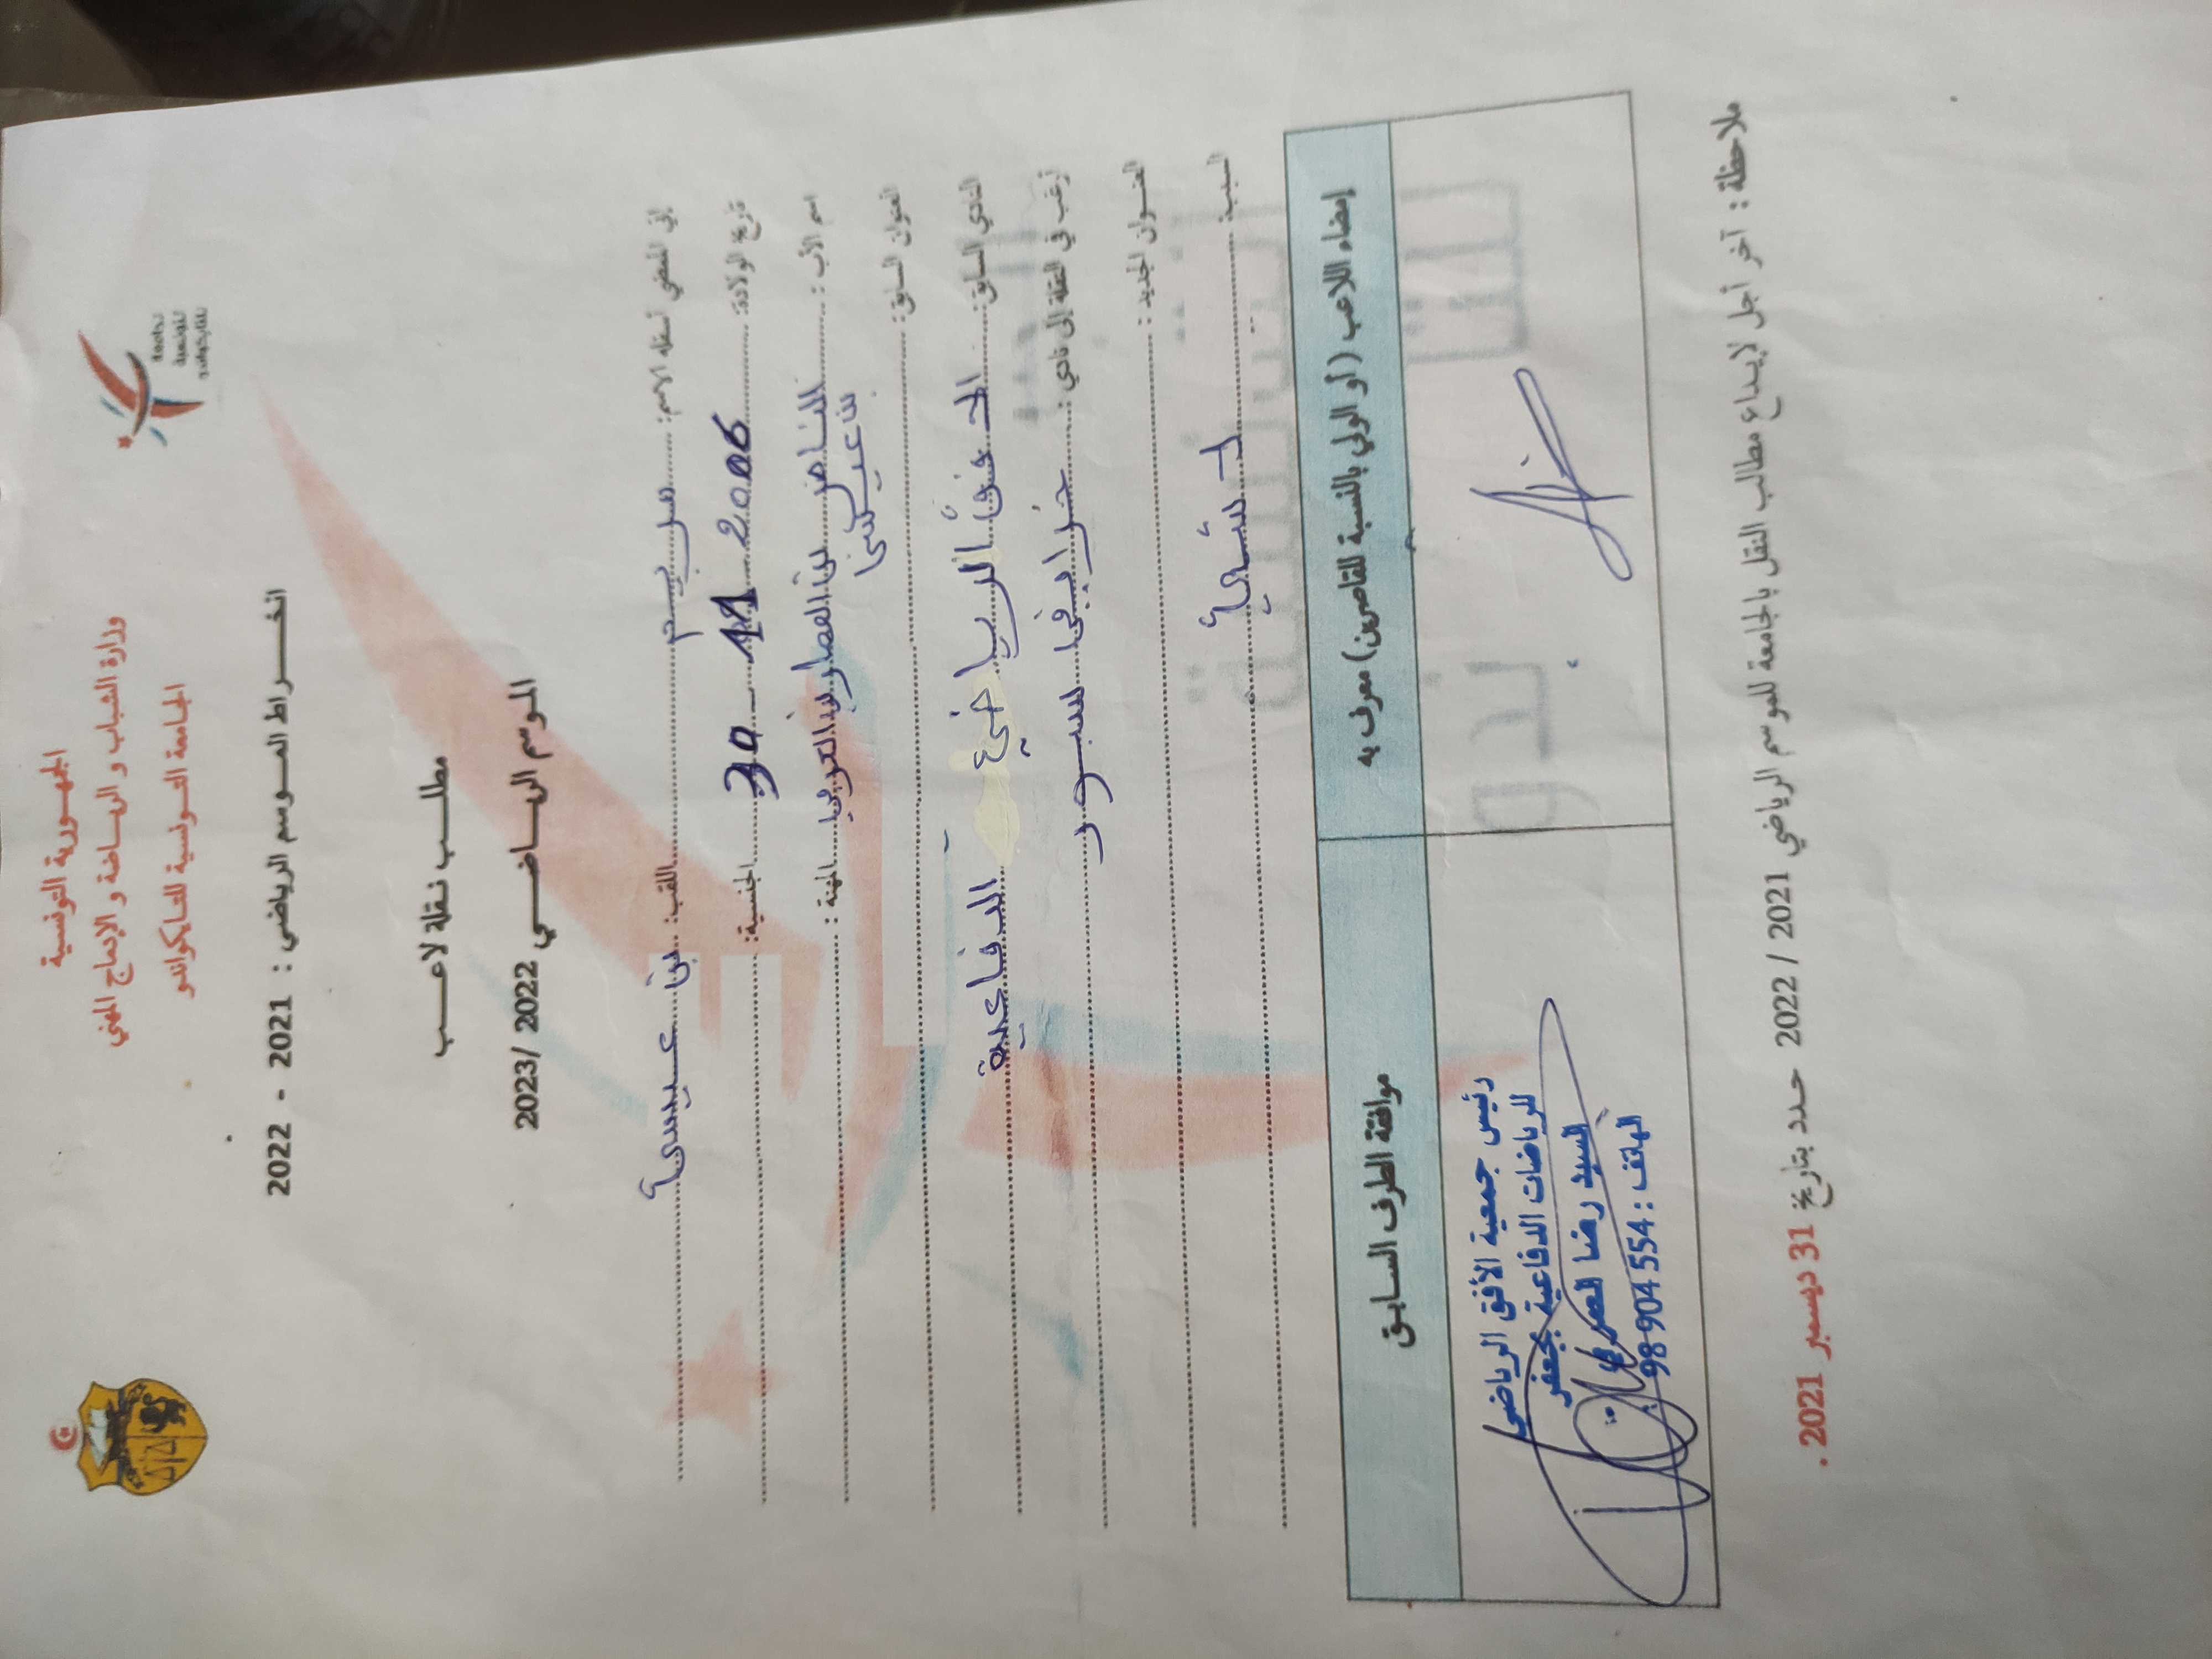 الجمهورية التونسية
وزارة الشباب و الرياضة و الإدماج المهني
الجامعة التونسية للتايكواندو
الجامعة
التونسية
للتايكواندو
انخراط الموسم الرياضي : 2021 - 2022
مطلب نقلة لاعب
الموسم الرياضي 2022 /2023
إني الممضي أسفله الاسم: مريم اللقب: بن عيسى
تاريخ الولادة: 30 11 2006 الجنسية:
اسم الأب : الناصر بن العربي المهنة :
بن عيسى
العنوان السابق:
النادي السابق: الرياضي الدفاعية
أرغب في النقلة إلى نادي : سبور
العنوان الجديد :
السبب:
إمضاء اللاعب (أو الولي بالنسبة للقاصرين) معرف به
موافقة الطرف السابق
رئيس جمعية الأفق الرياضي
للرياضات الدفاعية بجعفر
السيد رضا
الهاتف : 98 904 554
ملاحظة : آخر أجل لإيداع مطالب النقل بالجامعة للموسم الرياضي 2021 / 2022 حدد بتاريخ 31 ديسمبر 2021 .